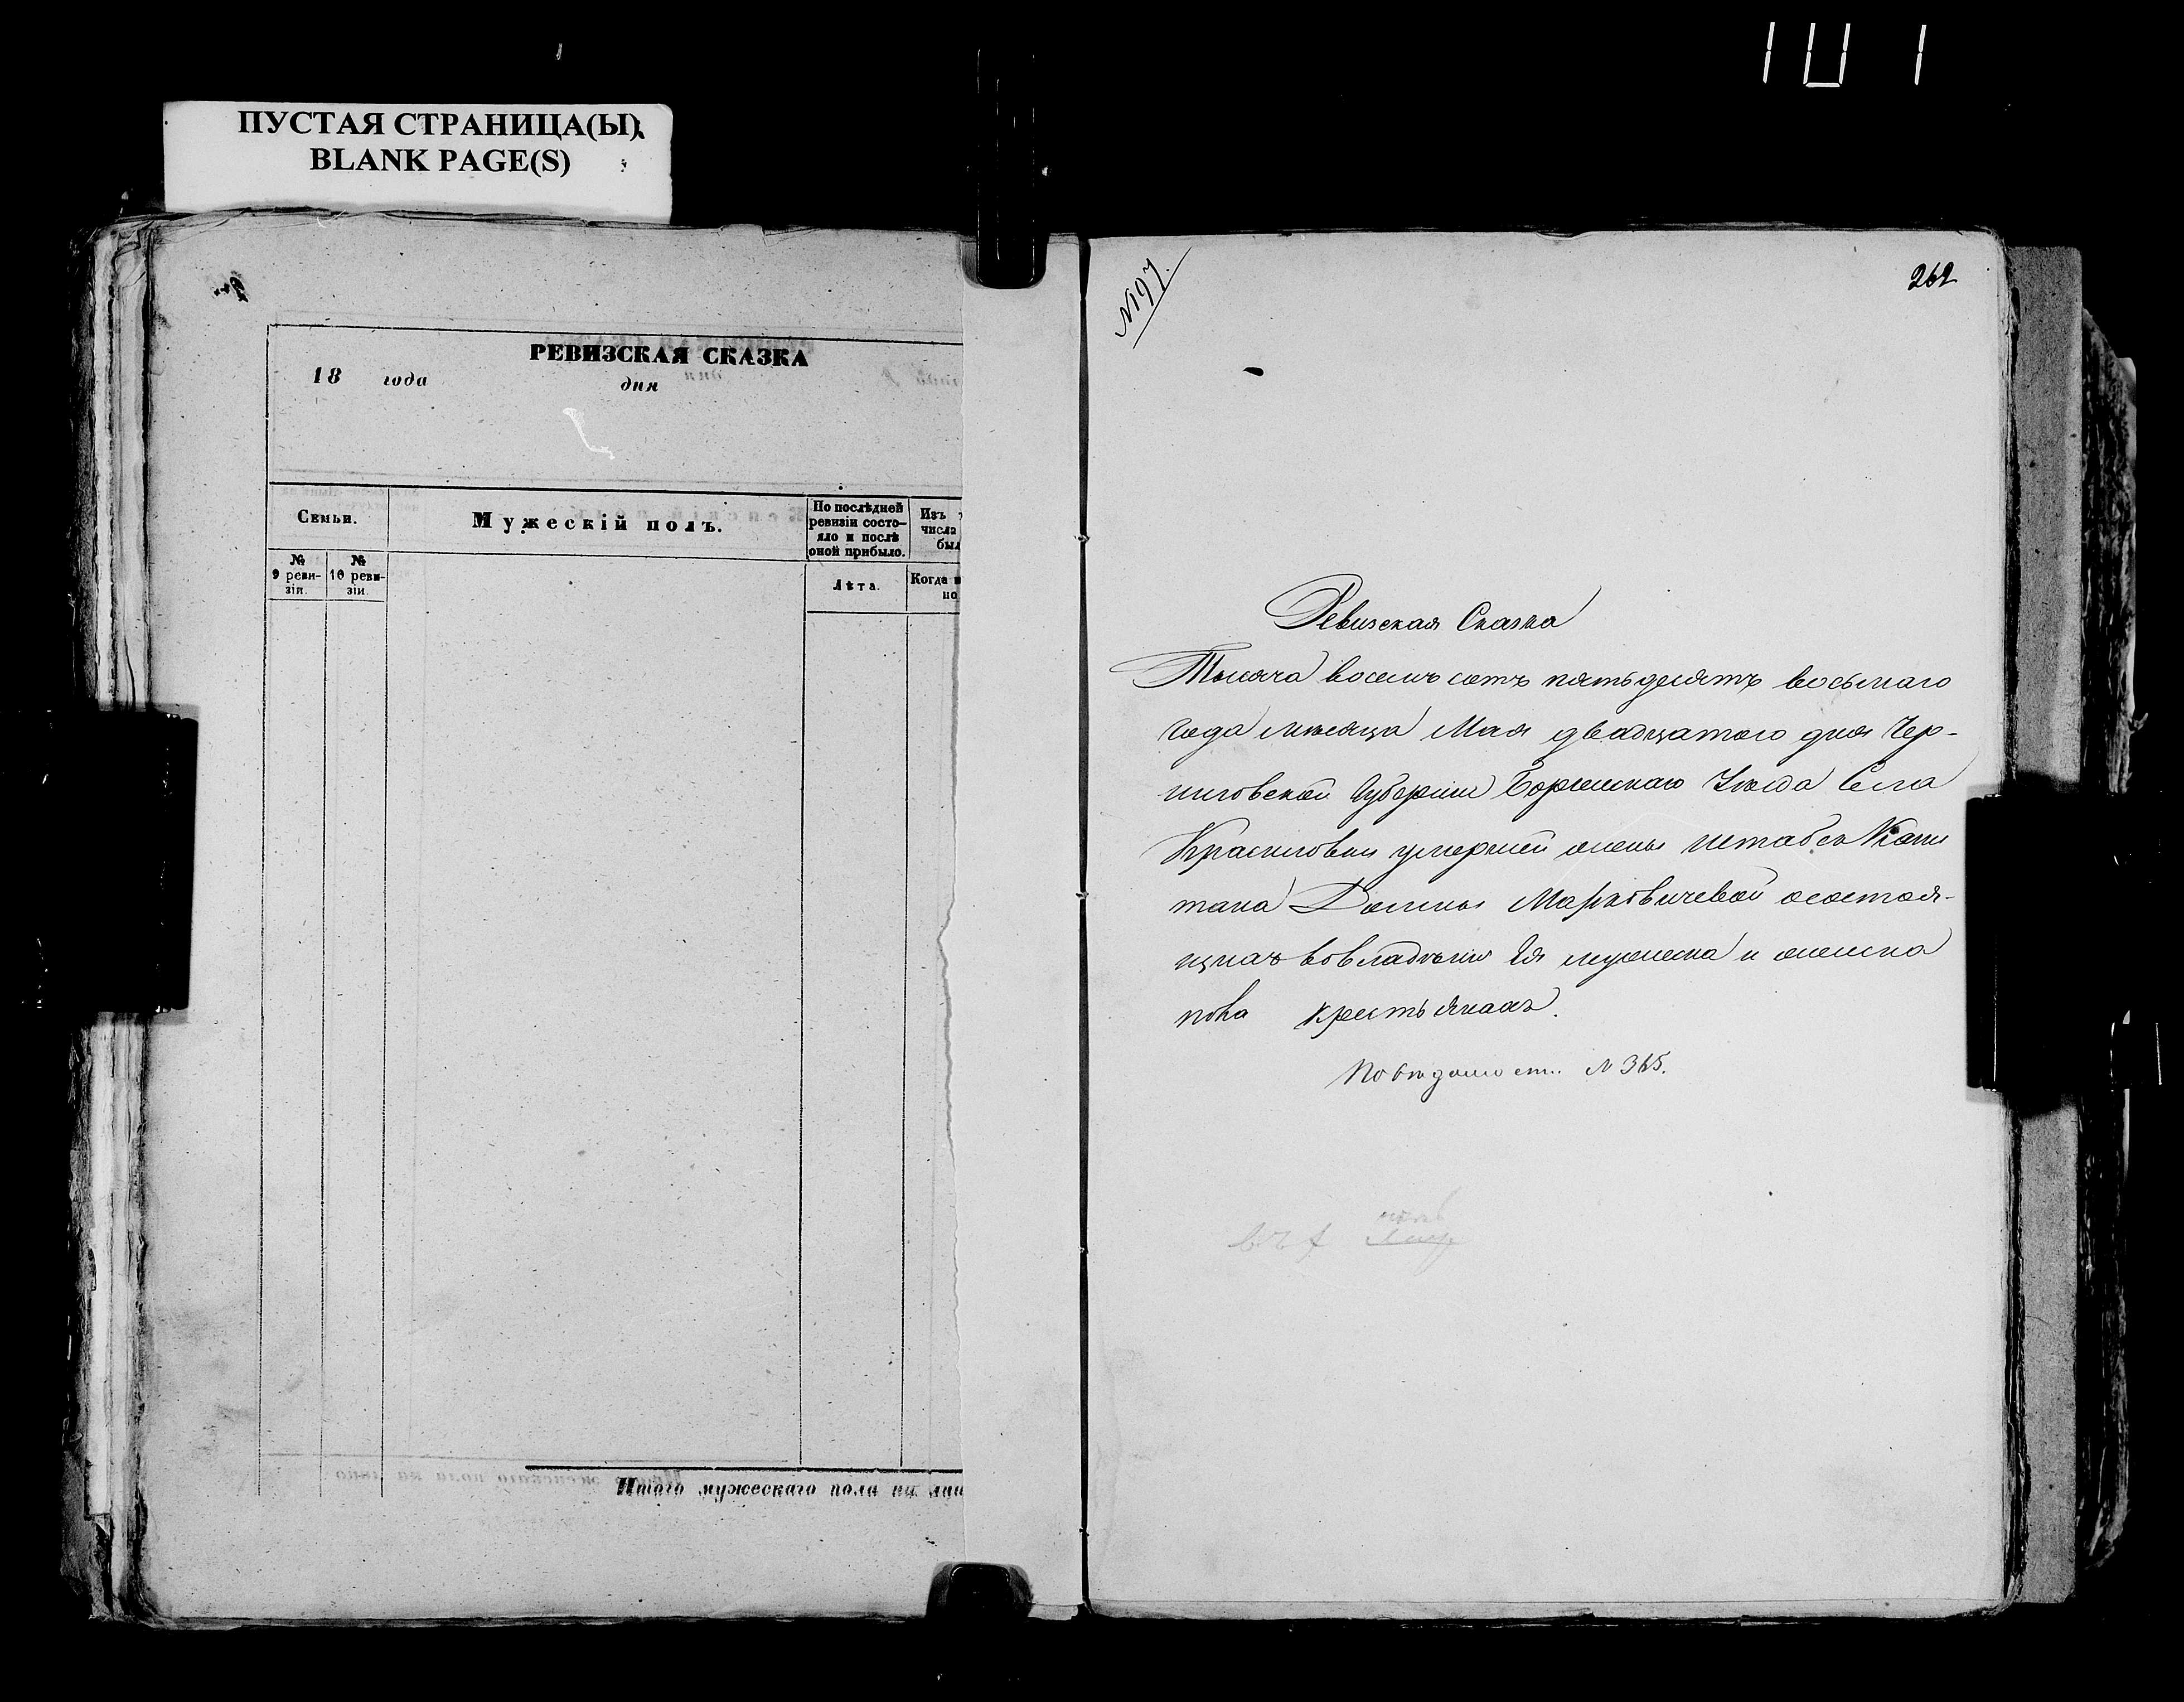 ПУСТАЯ СТРАНИЦА(Ы)
BLANK PAGE(S)
РЕВИЗСКАЯ СКАЗКА
18 года дня
Семьи.
Мужескій полъ.
По послѣдней
ревизіи состо-
яло и послѣ
оной прибыло.
Изъ
числа
был
№
9 реви-
зіи.
№
10 реви-
зіи.
Лѣта.
Когда
но
Итого мужескаго пола на лиц
№97.
262
Ревизская Сказка
Тысяча восемь сотъ пятьдесятъ восьмаго
года месяца Мая двадцатого дня Чер-
ниговской Губерніи Борзенскаго Уѣзда Села
Красиловки умершей жены штабсъ Капи
тана Маркевичевой осостоя-
щихъ вовладѣніи Ея мужеска и женска
пола крестьянахъ.
По вѣдомост. №365.